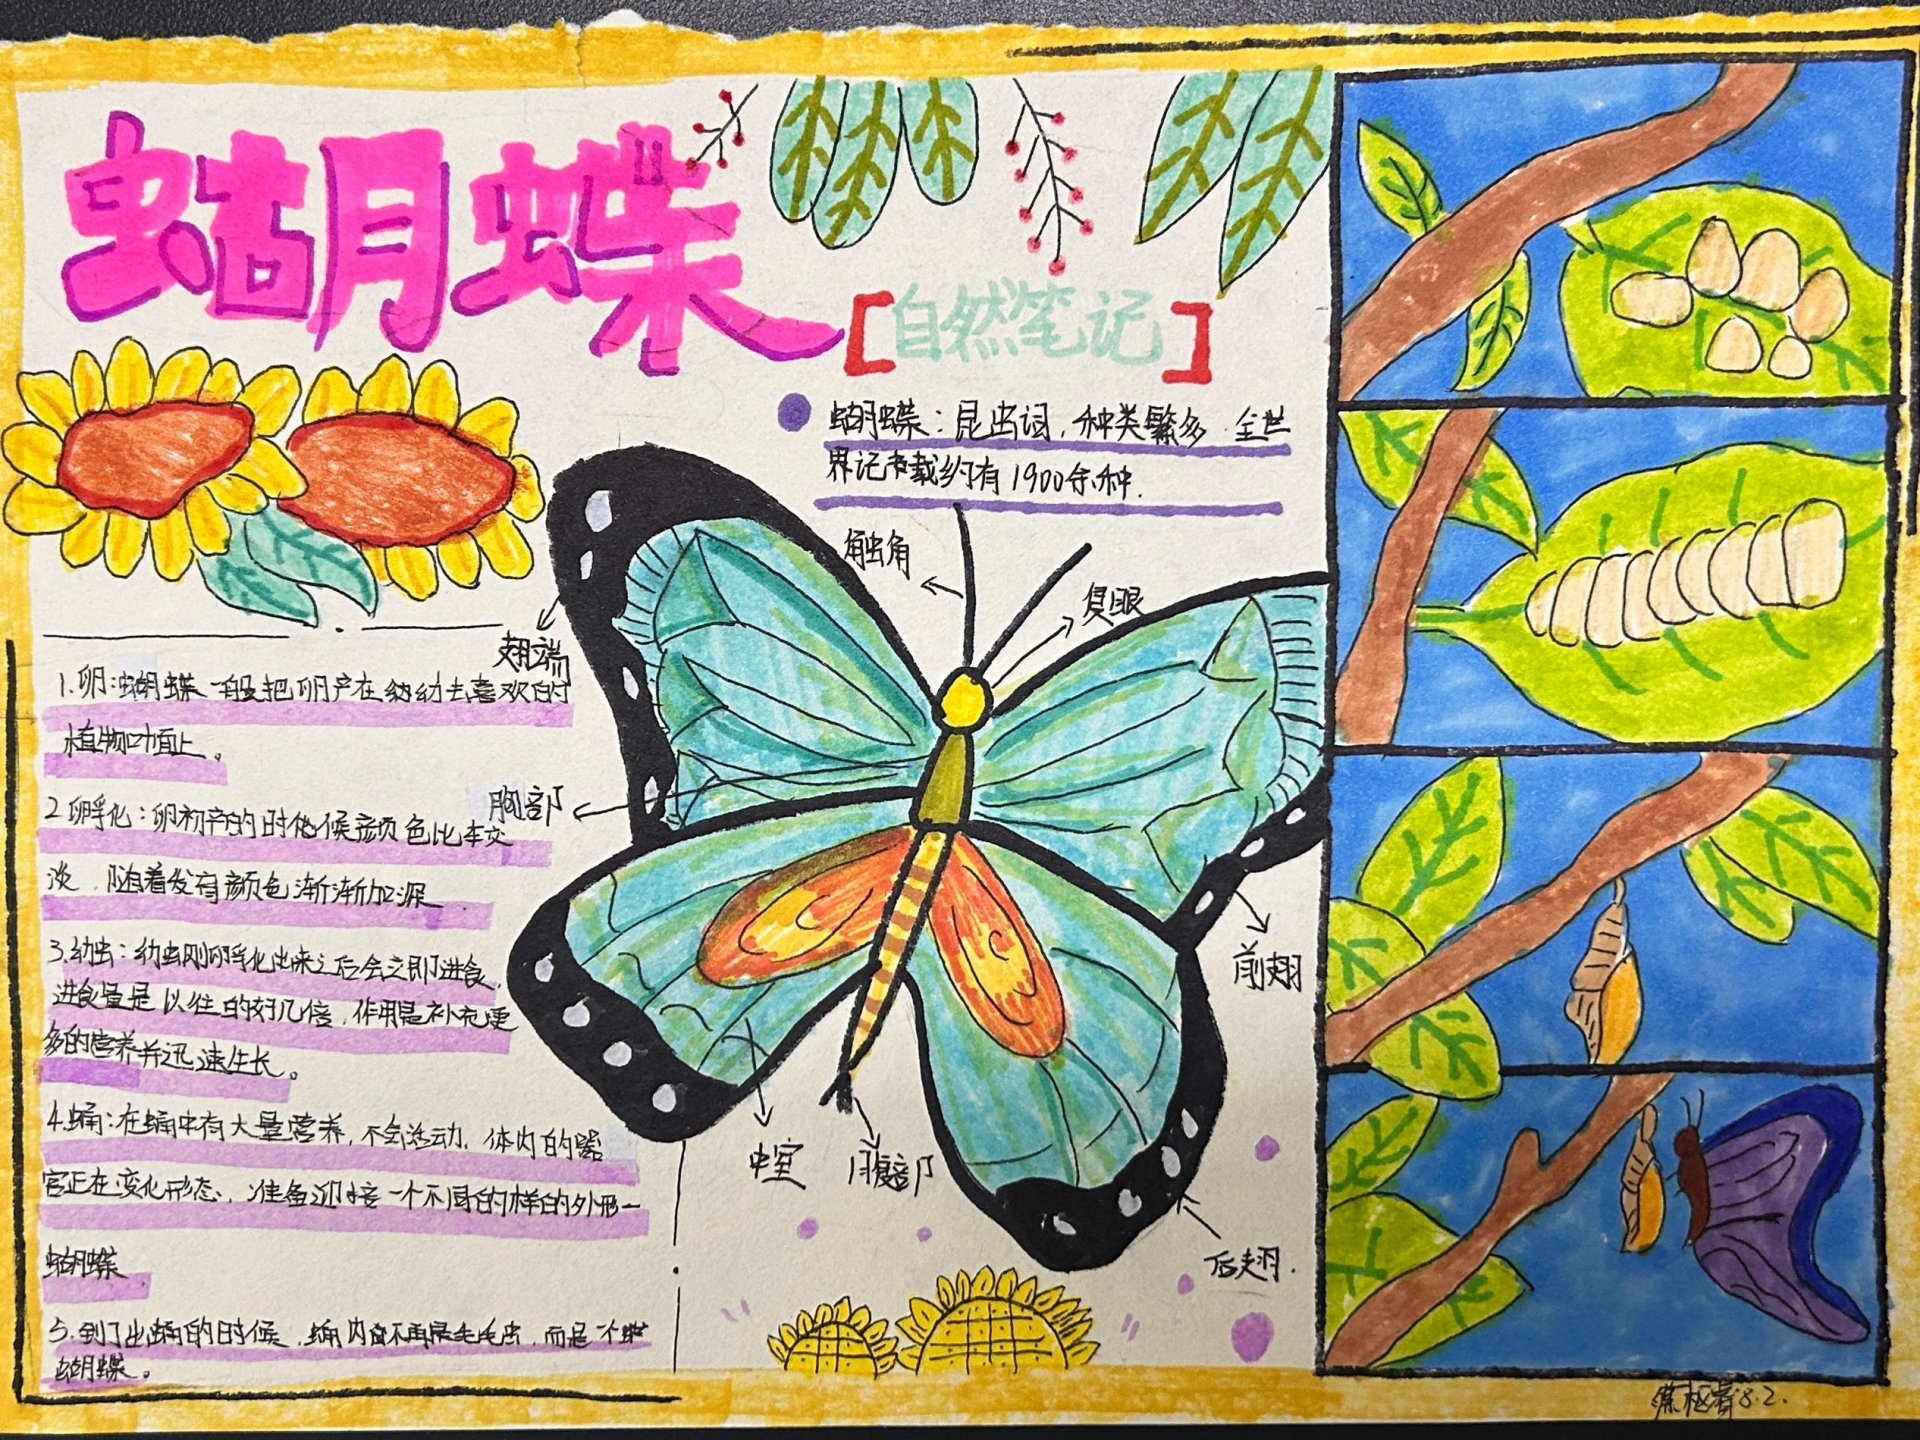 蝴蝶
[自然笔记]
蝴蝶:昆虫词,种类繁多.全世
界记载约有1900余种.
触角
复眼
翅端
1.卵:蝴蝶一般把卵产在幼虫喜欢的
植物叶面上。
胸部
2卵孵化:卵初产的时候颜色比较
淡,随着发育颜色渐渐加深
3.幼虫:幼虫刚孵化出来之后会立即进食.
进食量是以往的好几倍,作用是补充更
多的营养并迅速生长。
前翅
4.蛹:在蛹中有大量营养,不会活动,体内的器
官正在变化形态,准备迎接一个不同的样的外形一
蝴蝶
中室
腹部
后翅.
5.到了出蛹的时候,蛹内在不再是毛毛虫,而是一个
蝴蝶。
8.2.